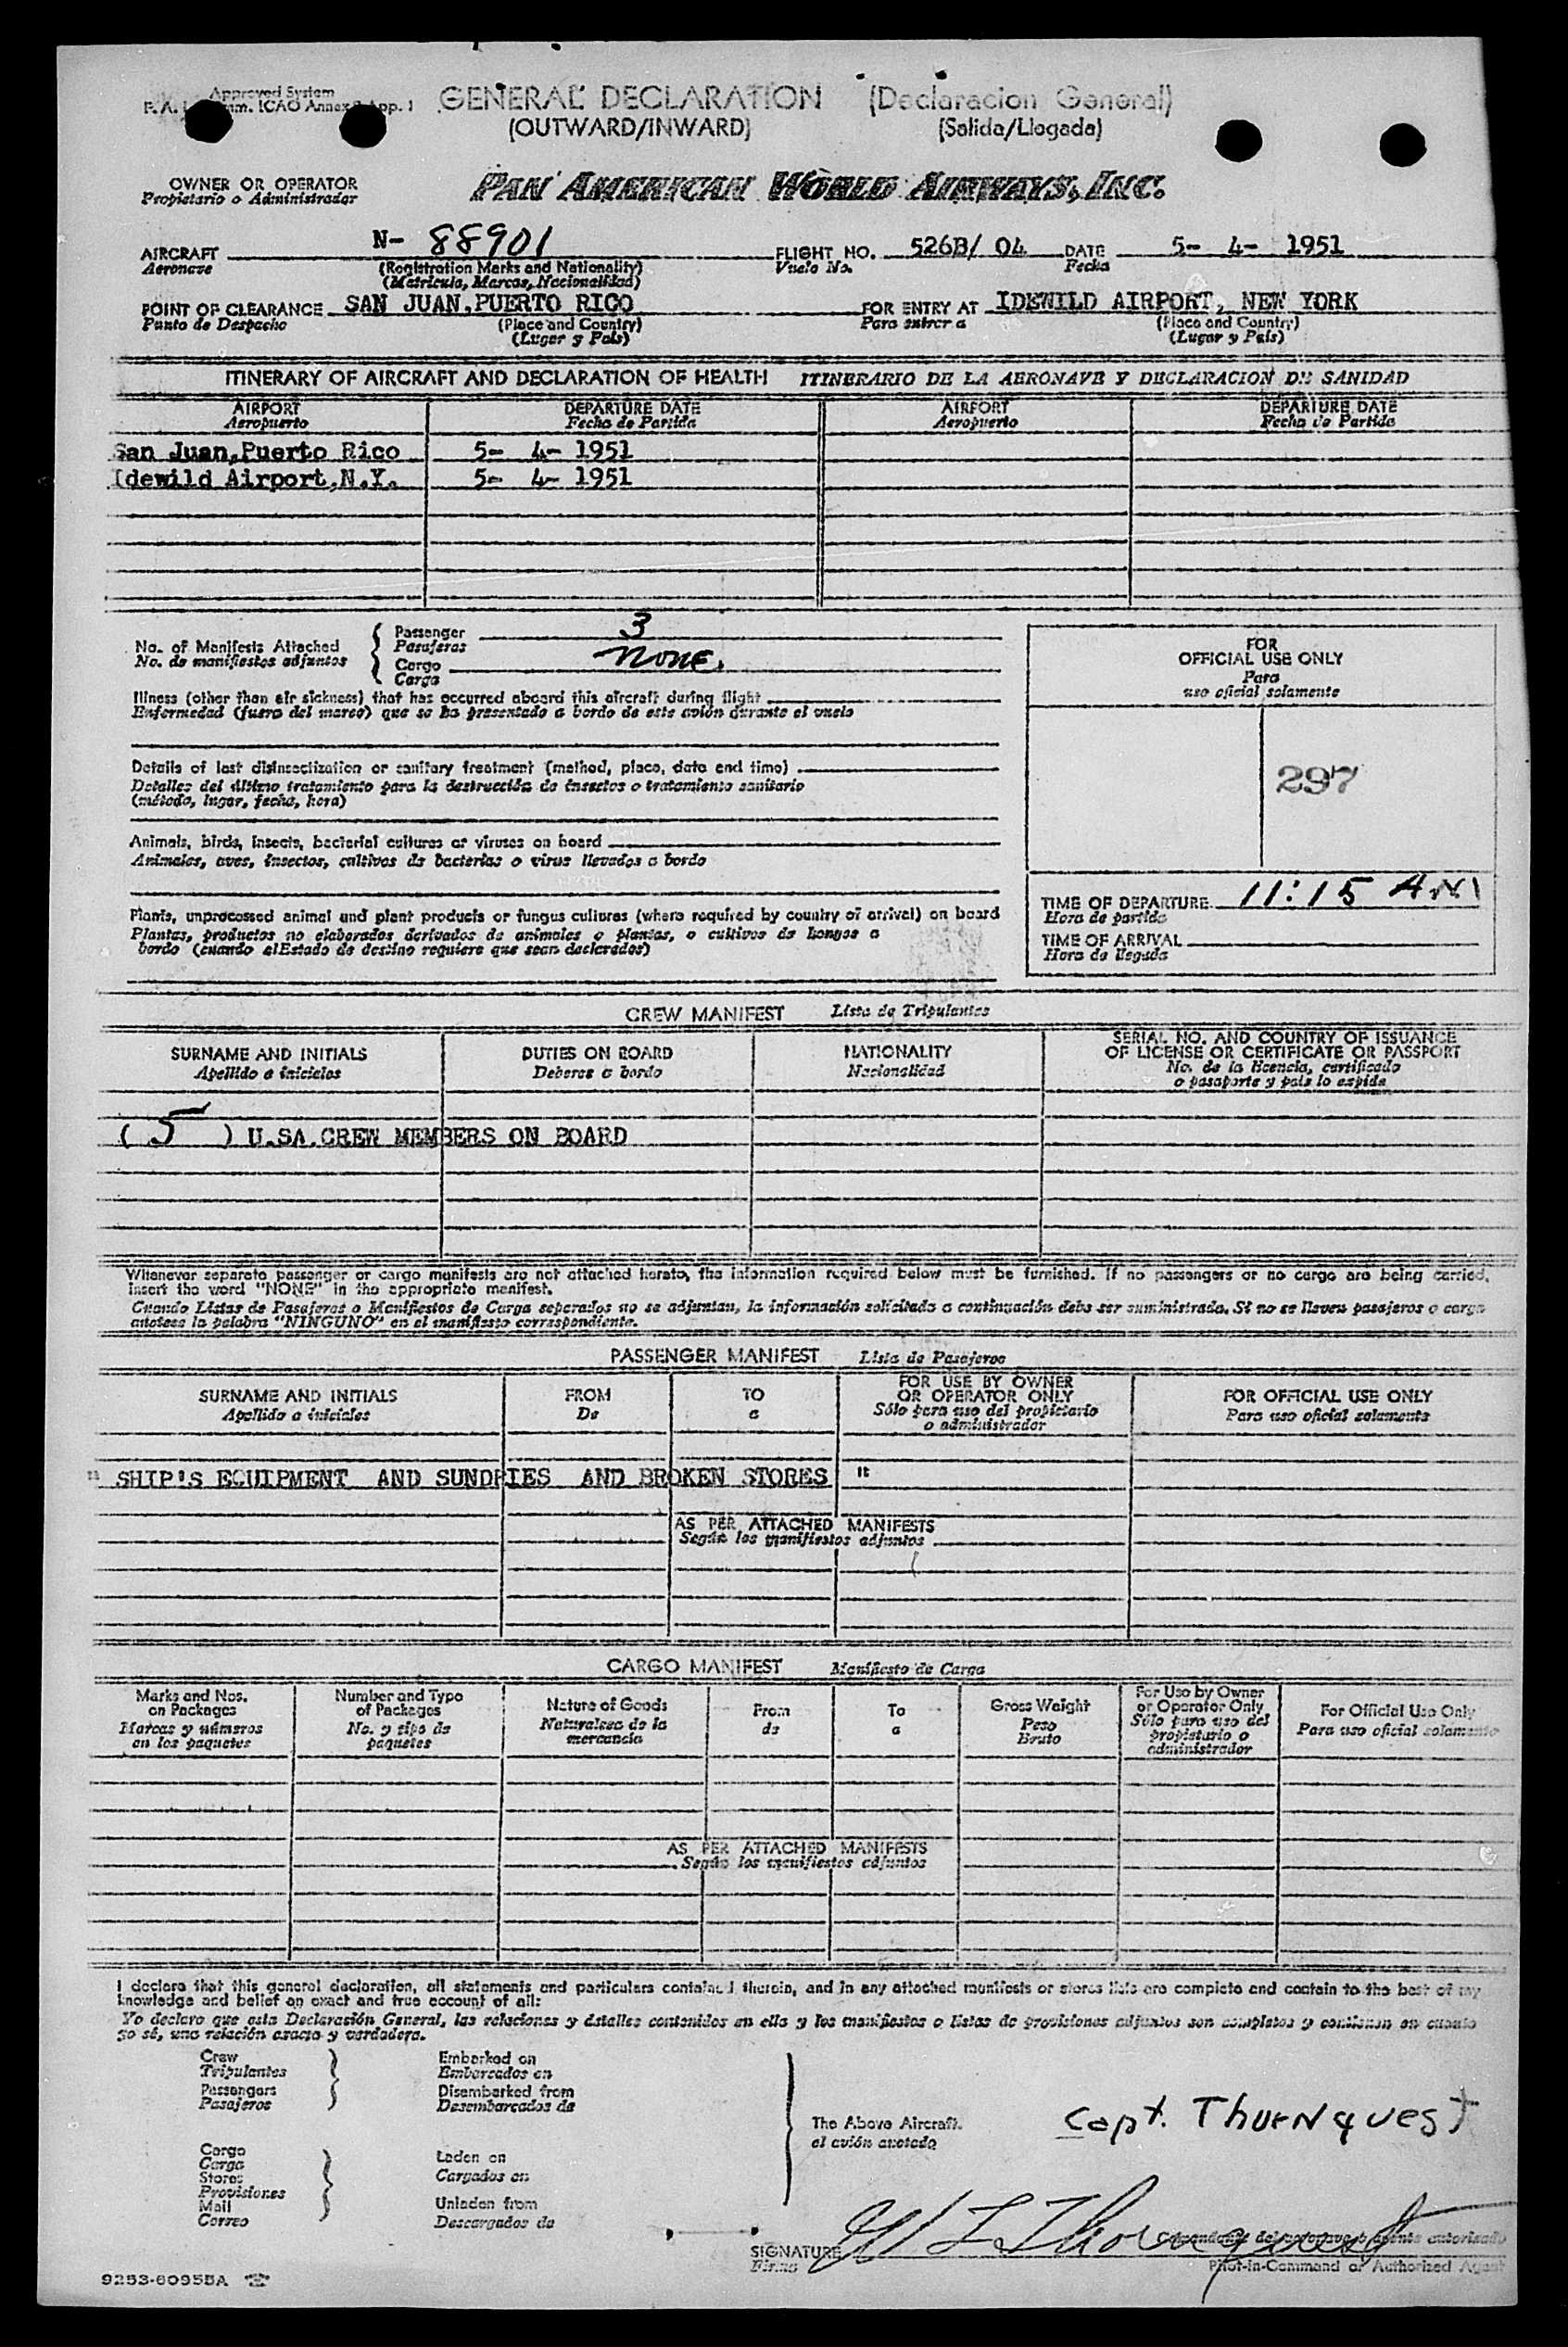 Approved System
GENERAL DECLARATION (Declaracion General)
(OUTWARD/INWARD) (Salida/Llegada)
OWNER OR OPERATOR
Propietario o Administrador
PAN AMERICAN WORLD AIRWAYS, INC.
AIRCRAFT N- 88901 FLIGHT NO. 526B/ 04 DATE 5- 4- 1951
Aeronave (Registration Marks and Nationality) Vuelo No. Fecha
(Matricula, Marcas, Nacionalidad)
POINT OF CLEARANCE SAN JUAN, PUERTO RICO FOR ENTRY AT IDEWILD AIRPORT, NEW YORK
Punto de Despacho (Place and Country) Para entrar a (Place and Country)
(Lugar y País) (Lugar y País)
ITINERARY OF AIRCRAFT AND DECLARATION OF HEALTH ITINERARIO DE LA AERONAVE Y DECLARACION DE SANIDAD
AIRPORT DEPARTURE DATE AIRPORT DEPARTURE DATE
Aeropuerto Fecha de Partida Aeropuerto Fecha de Partida
San Juan,Puerto Rico 5- 4- 1951
Idewild Airport,N.Y. 5- 4- 1951
No. of Manifests Attached
No. de manifiestos adjuntos
Passenger 3
Pasajeros
Cargo NONE.
Carga
Illness (other than air sickness) that has occurred aboard this aircraft during flight
Enfermedad (fuera del mareo) que se ha presentado a bordo de este avión durante el vuelo
Details of last disinsectization or sanitary treatment (method, place, date and time)
Detalles del último tratamiento para la destrucción de insectos o tratamiento sanitario
(método, lugar, fecha, hora)
Animals, birds, insects, bacterial cultures or viruses on board
Animales, aves, insectos, cultivos de bacterias o virus llevados a bordo
Plants, unprocessed animal and plant products or fungus cultures (where required by country of arrival) on board
Plantas, productos no elaborados derivados de animales o plantas, o cultivos de hongos a
bordo (cuando el Estado de destino requiere que sean declarados)
FOR
OFFICIAL USE ONLY
Para
uso oficial solamente
297
TIME OF DEPARTURE 11:15 AM
Hora de partida
TIME OF ARRIVAL
Hora de llegada
CREW MANIFEST Lista de Tripulantes
SURNAME AND INITIALS DUTIES ON BOARD NATIONALITY SERIAL NO. AND COUNTRY OF ISSUANCE
OF LICENSE OR CERTIFICATE OR PASSPORT
Apellido e iniciales Deberes a bordo Nacionalidad No. de la licencia, certificado
o pasaporte y país lo expide
( 5 ) U.SA.CREW MEMBERS ON BOARD
Whenever separate passenger or cargo manifests are not attached hereto, the information required below must be furnished. If no passengers or no cargo are being carried,
insert the word "NONE" in the appropriate manifest.
Cuando Listas de Pasajeros o Manifiestos de Carga separados no se adjuntan, la información solicitada a continuación debe ser suministrada. Si no se lleven pasajeros o carga
anotese la palabra "NINGUNO" en el manifiesto correspondiente.
PASSENGER MANIFEST Lista de Pasajeros
SURNAME AND INITIALS FROM TO FOR USE BY OWNER
OR OPERATOR ONLY FOR OFFICIAL USE ONLY
Apellido e iniciales De a Sólo para uso del propietario
o administrador Para uso oficial solamente
" SHIP'S EQUIPMENT AND SUNDRIES AND BROKEN STORES "
AS PER ATTACHED MANIFESTS
Según los manifiestos adjuntos
CARGO MANIFEST Manifiesto de Carga
Marks and Nos.
on Packages
Marcas y números
en los paquetes
Number and Type
of Packages
No. y tipo de
paquetes
Nature of Goods
Naturaleza de la
mercancia
From
de
To
a
Gross Weight
Peso
Bruto
For Use by Owner
or Operator Only
Sólo para uso del
propietario o
administrador
For Official Use Only
Para uso oficial solamente
AS PER ATTACHED MANIFESTS
Según los manifiestos adjuntos
I declare that this general declaration, all statements and particulars contained therein, and in any attached manifests or stores lists are complete and contain to the best of my
knowledge and belief an exact and true account of all:
Yo declaro que esta Declaración General, las relaciones y detalles contenidos en ella y los manifiestos o listas de provisiones adjuntos son completos y contienen en cuanto
yo sé, una relación exacta y verdadera.
Crew
Tripulantes
Passengers
Pasajeros
Embarked on
Embarcados en
Disembarked from
Desembarcados de
Cargo
Carga
Stores
Provisiones
Mail
Correo
Laden on
Cargados en
Unladen from
Descargados de
The Above Aircraft.
el avión anotado
Capt. Thornquest
SIGNATURE
Firma
Pilot-in-Command or Authorized Agent
9253-6095BA